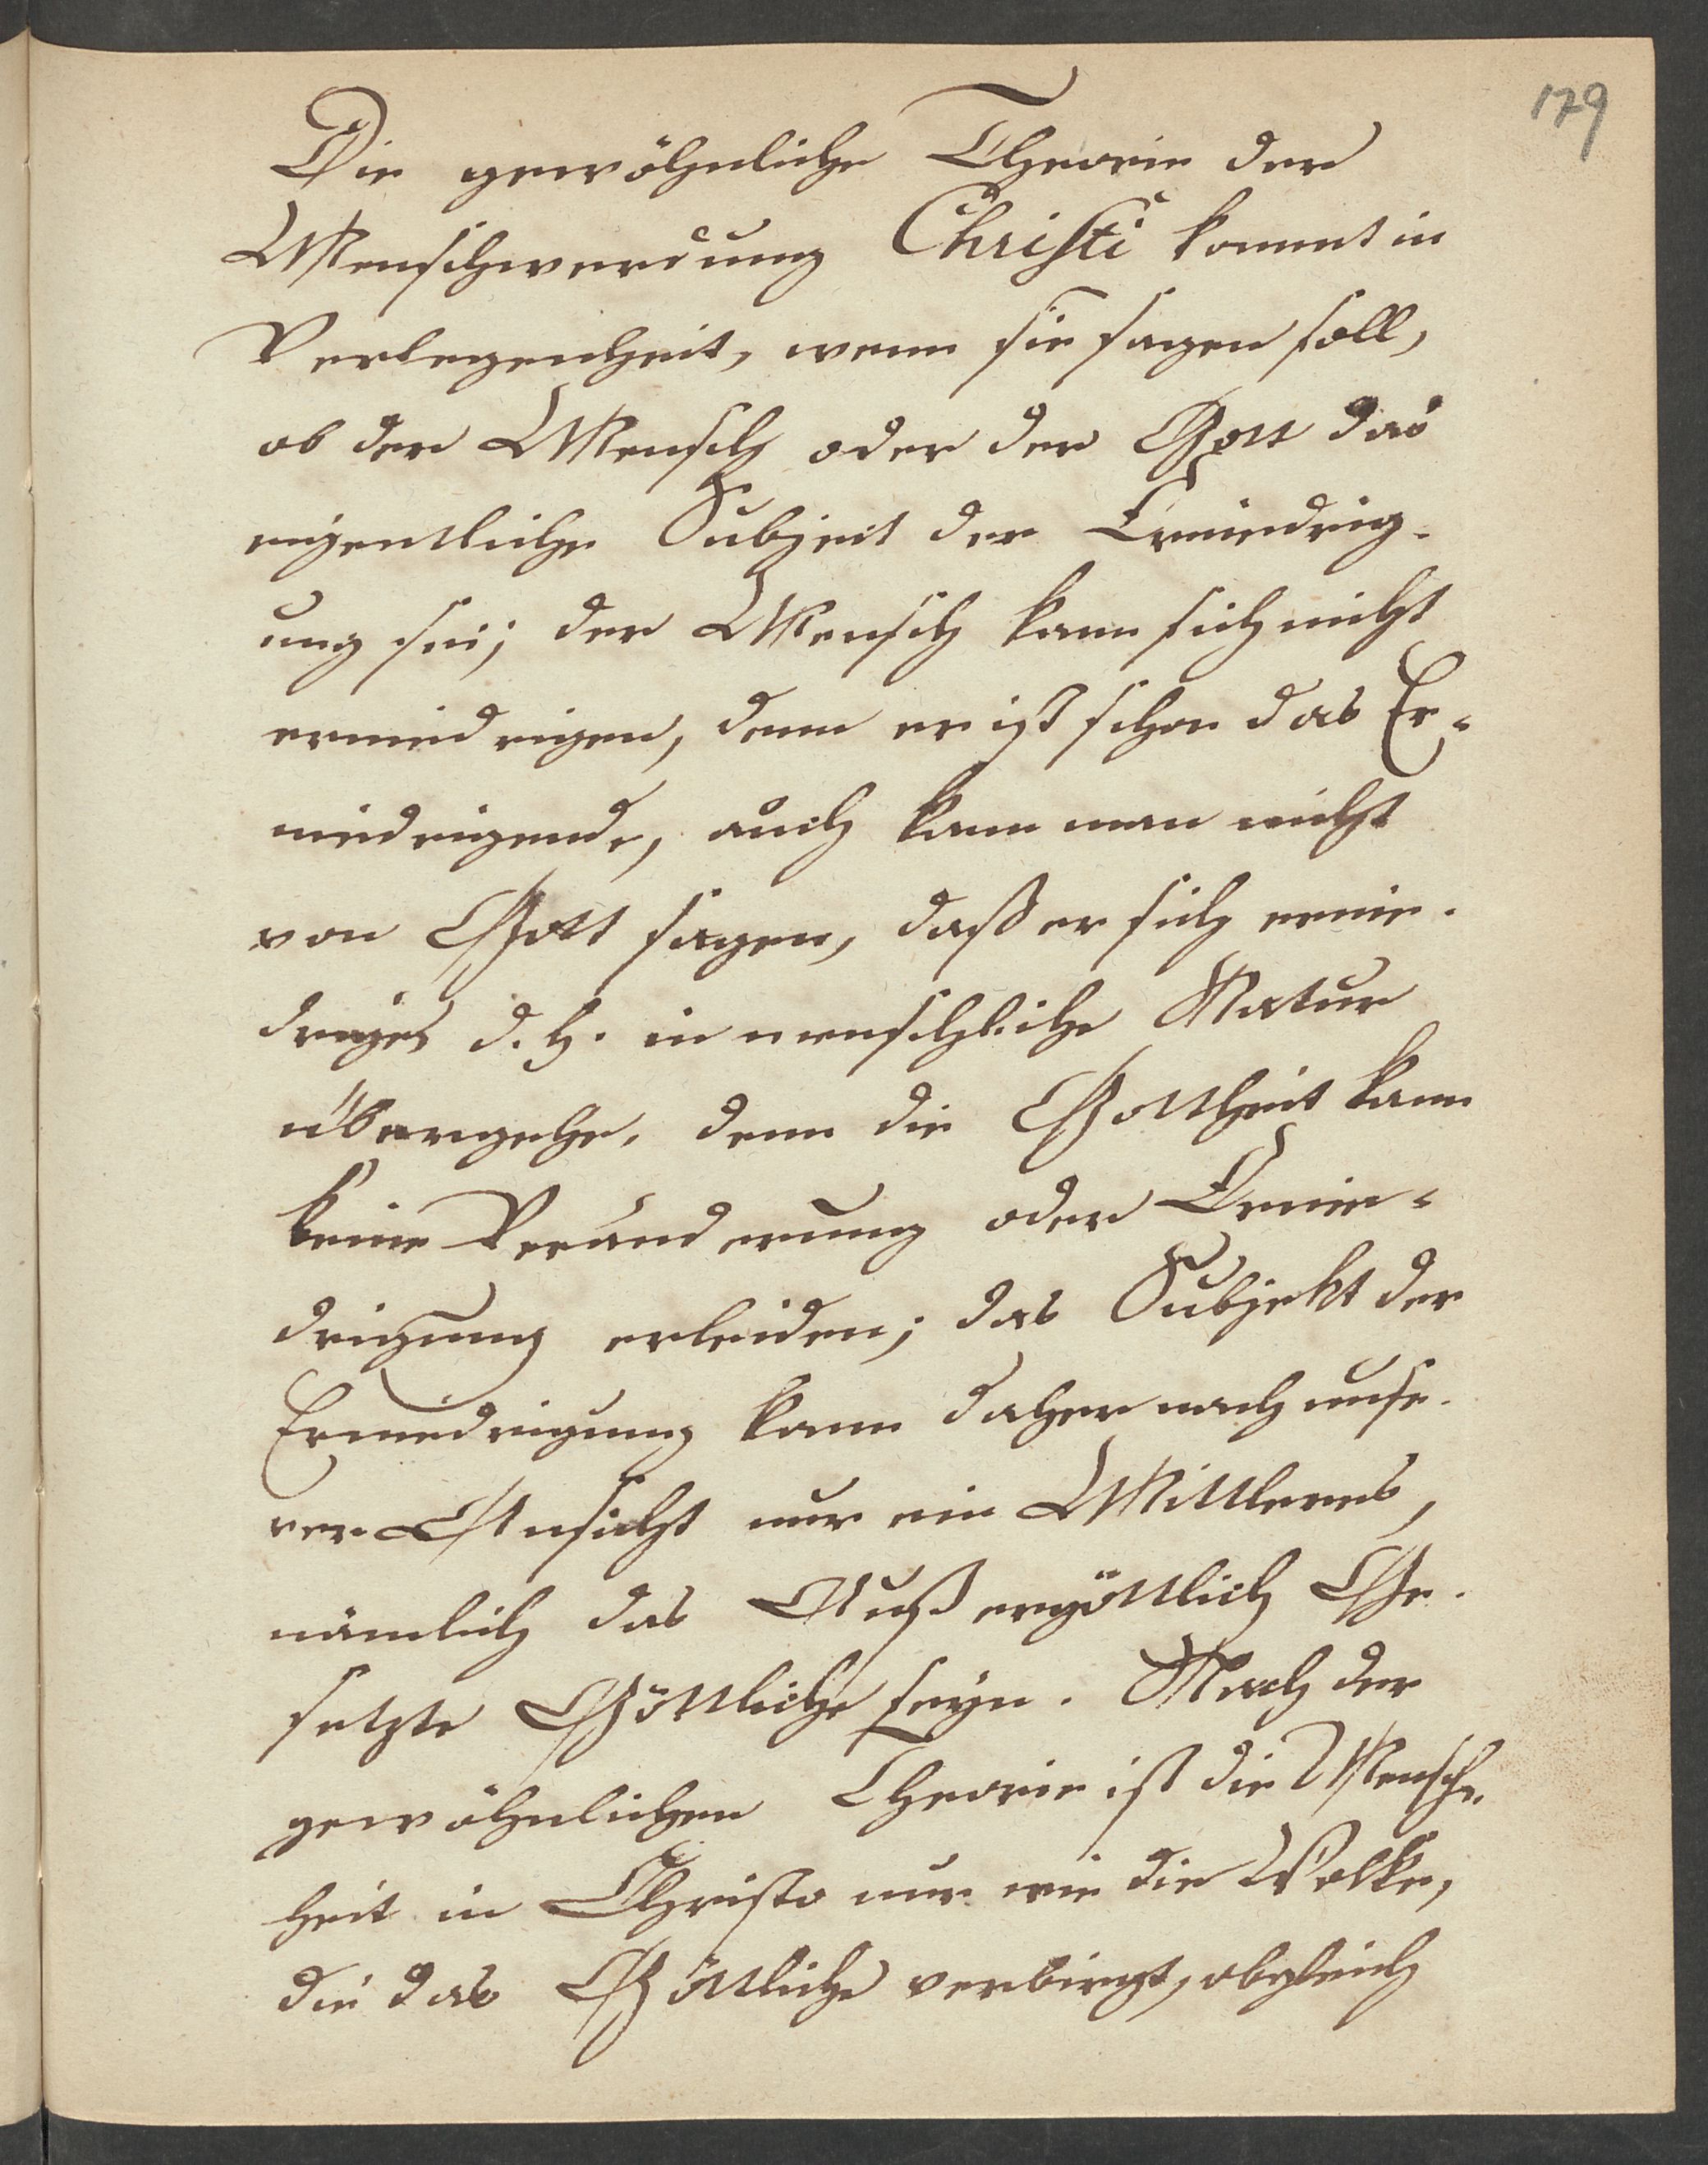 179
Die gewöhnliche Theorie der
Menschwerdung Christi kommt in
Verlegenheit, wenn sie sagen soll,
ob der Mensch oder der Gott das
eigentliche Subject der Erniedrig-
ung sei; der Mensch kann sich nicht
erniedrigen, denn er ist schon das Er-
niedrigende, auch kann man nicht
von Gott sagen, daß er sich ernie-
drige, d. h. in menschliche Natur
übergehe, denn die Gottheit kann
keine Veränderung oder Ernie-
drigung erleiden; das Subjekt der
Erniedrigung kann daher nach unse-
rer Ansicht nur ein Mittleres,
nämlich das Außergöttlich Ge-
setzte Göttliche seyn. Nach der
gewöhnlichen Theorie ist die Mensch-
heit in Christo nur wie die Wolke,
die das Göttliche verbirgt, obgleich